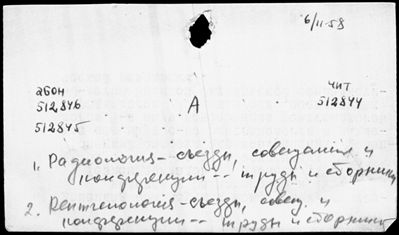 6/II-58
абон
512846
чит
512844
А
512845
1. Радиология - съезды, совещания и
конференции -- труды и сборники
2. Рентгенология - съезды, совещ. и
конференции -- труды и сборники